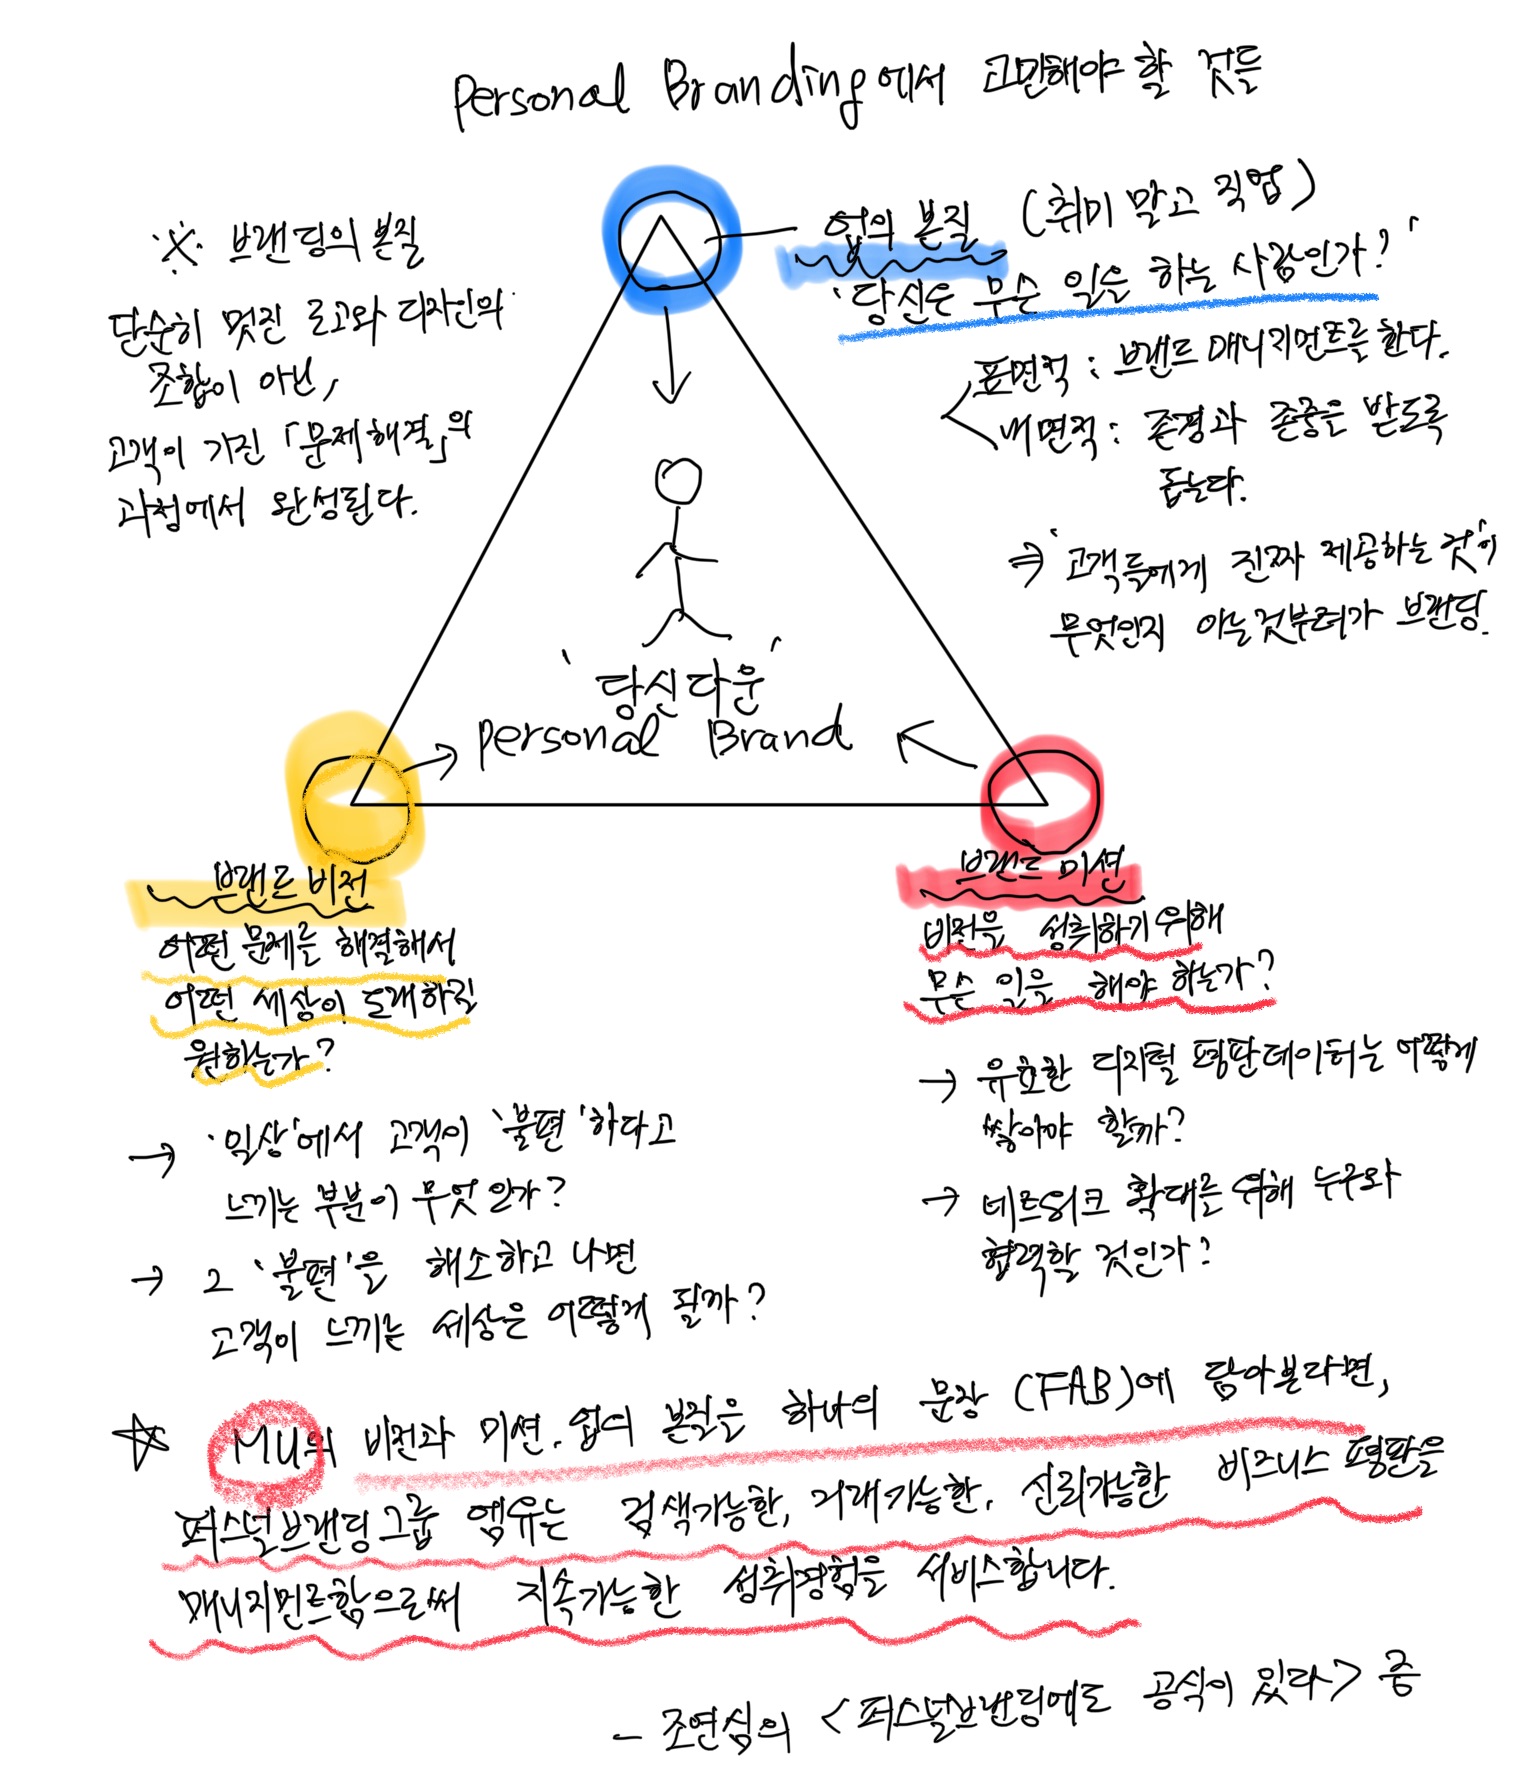 Personal Branding에서 고민해야 할 것들
※ 브랜딩의 본질
단순히 멋진 로고와 디자인의
조합이 아닌,
고객이 가진 「문제해결」의
과정에서 완성된다.
업의 본질 (취미 말고 직업)
'당신은 무슨 일을 하는 사람인가?'
표면적 : 브랜드 매니지먼트를 한다.
내면적 : 존경과 존중을 받도록
돕는다.
⇒ '고객들에게 진짜 제공하는 것'이
무엇인지 아는것부터가 브랜딩.
'당신다운'
Personal Brand
브랜드 비전
어떤 문제를 해결해서
어떤 세상이 도래하길
원하는가?
→ '일상'에서 고객이 '불편'하다고
느끼는 부분이 무엇인가?
→ 그 '불편'을 해소하고 나면
고객이 느끼는 세상은 어떻게 될까?
브랜드 미션
비전을 성취하기 위해
무슨 일을 해야 하는가?
→ 유효한 디지털 평판데이터는 어떻게
쌓아야 할까?
→ 네트워크 확대를 위해 누구와
협력할 것인가?
☆ MU의 비전과 미션. 업의 본질은 하나의 문장 (FAB)에 담아본다면,
퍼스널브랜딩그룹 엠유는 검색가능한, 거래가능한, 신뢰가능한 비즈니스 평판을
매니지먼트함으로써 지속가능한 성취경험을 서비스합니다.
- 조연심의 <퍼스널브랜딩에도 공식이 있다> 중